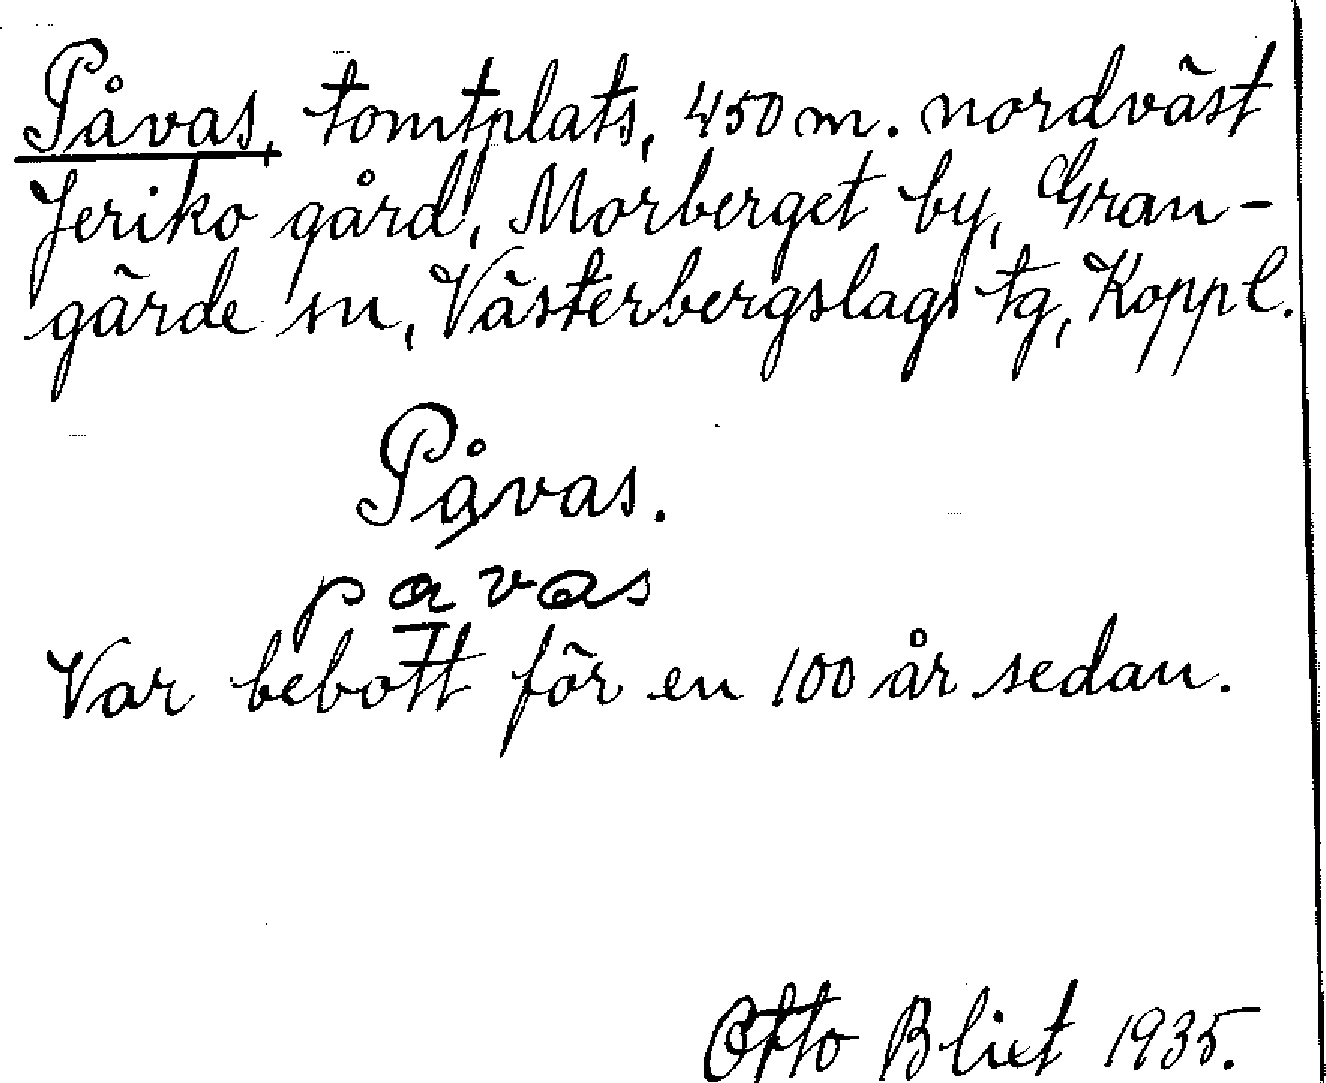 Påvas, tomtplats, 450 m. nordväst
Jeriko gård, Morberget by, Gran-
gärde sn, Västerbergslags tg, Koppl.
Påvas.
pavas
Var bebott för en 100 år sedan.
Otto Blixt 1935.